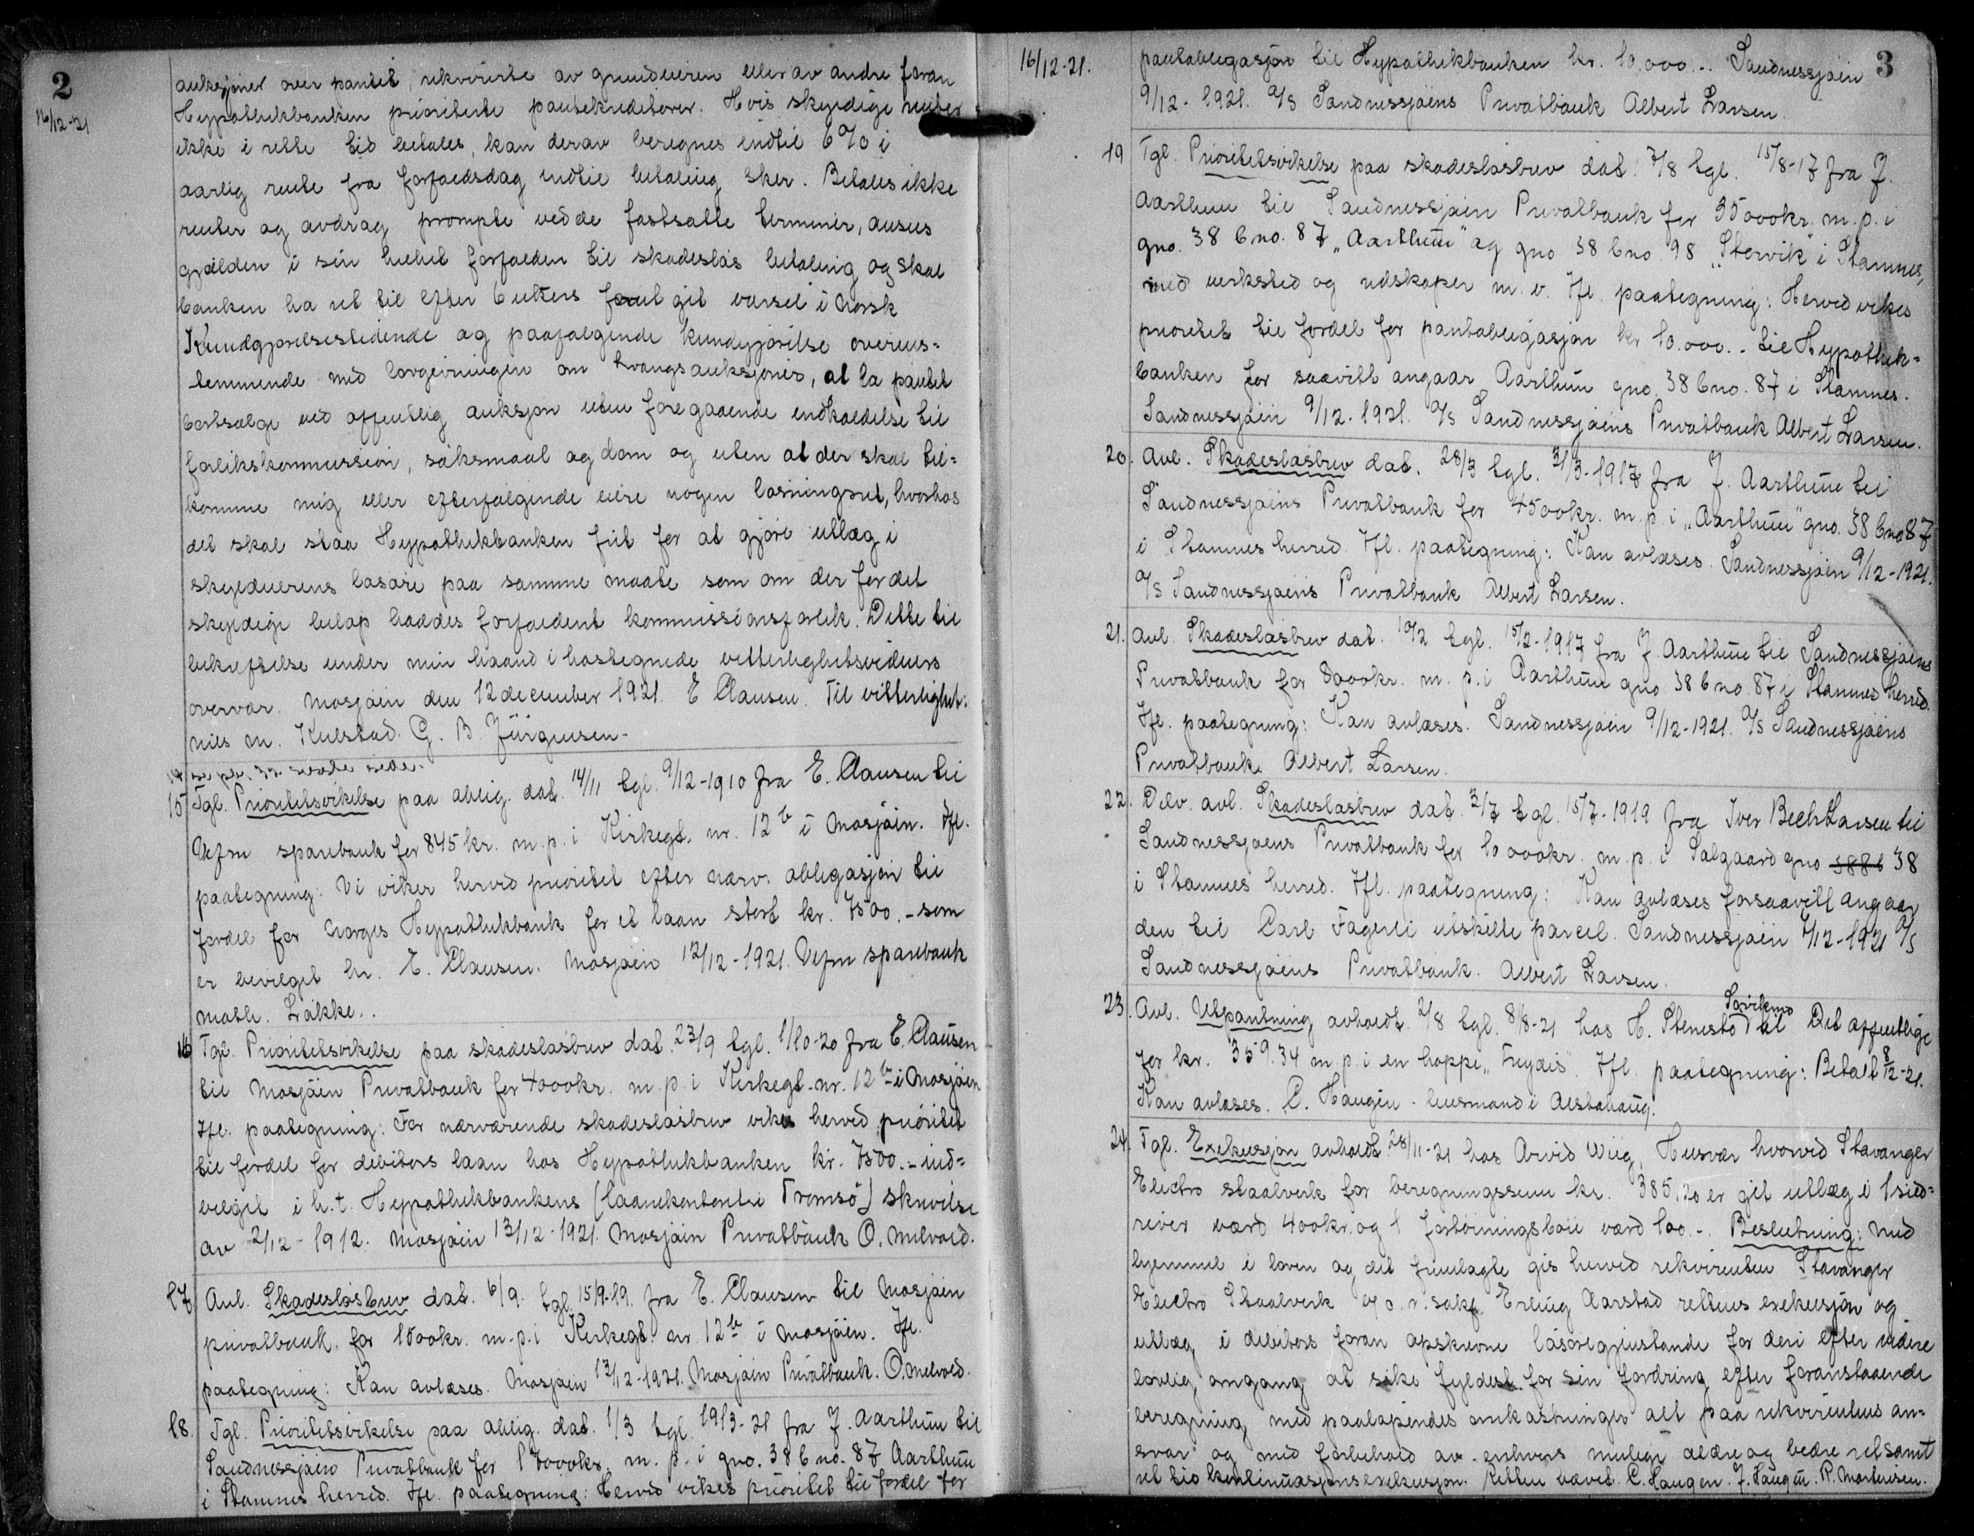 2
16/12-21
auksjoner over pantet, rekvirerte av grundeieren eller av andre foran
Hypothekbanken prioriterte pantekreditorer. Hvis skyldige renter
ikke i rette tid betales, kan derav beregnes indtil 6 % i
aarlig rente fra forfaldsdag indtil betaling sker. Betales ikke
renter og avdrag prompte ved de fastsatte terminer, ansees
gjælden i sin helhet forfalden til skadesløs betaling og skal
banken ha ret til efter 6 ukers forut git varsel i Norsk
Kundgjørelsestidende og paafølgende kundgjørelse overens-
temmende med lovgivningen om tvangsauksjoner, at la pantet
bortsælge ved offentlig auksjon uten foregaaende indkaldelse til
forlikskommission, søksmaal og dom og uten at der skal til-
komme mig eller efterfølgende eiere nogen løsningsret, hvorhos
det skal staa Hypothekbanken frit for at gjøre utlæg i
skyldnerens løsøre paa samme maate som om der for det
skyldige beløp haddes forfaldent kommissionsforlik. Dette til
bekræftelse under min haand i hostegnede vitterlighetsvidners
overvær. Mosjøen den 12 december 1921. E Clausen. Til vitterlighet:
Nils M. Kulstad. G. B Jürgensen.
14 se pb. 32 næste side.
15 Tgl. Prioritetsvikelse paa oblig. dat. 14/11 tgl. 9/12-1910 fra E. Clausen til
Vefsn sparebank for 845 kr. m. p. i Kirkegt. nr. 12 b i Mosjøen. Ifl.
paategning: Vi viker herved prioritet efter nærv. obligasjon til
fordel for Norges Hypothekbank for et laan stort kr. 7500.- som
er bevilget hr. E. Clausen. Mosjøen 12/12-1921. Vefsn sparebank
Math. Løkke.
16 Tgl. Prioritetsvikelse paa skadesløsbrev dat. 23/9 tgl. 1/10-20 fra E. Clausen
til Mosjøen Privatbank for 4000 kr. m. p. i Kirkegt. nr. 12 b i Mosjøen
Ifl. paategning: For nærværende skadesløsbrev vikes herved prioritet
til fordel for debitors laan hos Hypothekbanken kr. 7500.- ind-
vilget i h.t. Hypothekbankens (laanekontoret i Tromsø) skrivelse
av 2/12-1912. Mosjøen 13/12-1921. Mosjøen Privatbank O. Melvold.
17 Avl. Skadesløsbrev dat. 6/9. tgl. 15/9-19. fra E. Clausen til Mosjøen
privatbank, for 1500 kr. m. p. i Kirkegt. nr. 12 b i Mosjøen. Ifl.
paategning: Kan avlæses. Mosjøen 13/12-1921. Mosjøen Privatbank. O. Melvold.
18. Tgl. Prioritetsvikelse paa oblig. dat. 1/3 tgl. 19/3-21 fra J. Aarthun til
Sandnessjøen Privatbank for 15000 kr. m. p. i gno. 38 bno. 87 Aarthun
i Stamnes herred. Ifl. paategning: Herved vikes prioritet til fordel for
3
16/12-21.
pantobligasjon til Hypothekbanken kr. 10.000.-. Sandnessjøen
9/12-1921. A/S Sandnessjøens Privatbank Albert Larsen.
19 Tgl. Prioritetsvikelse paa skadesløsbrev dat. 7/8 tgl. 15/8-17 fra J.
Aarthun til Sandnessjøen Privatbank for 35000 kr. m. p. i
gno. 38 bno. 87 "Aarthun" og gno 38 bno. 98 "Storvik" i Stamnes,
med verksted og redskaper m. v. Ifl. paategning: Herved vikes
prioritet til fordel for pantobligasjon kr 10.000.- til Hypothek-
banken for saavitt angaar Aarthun gno. 38 bno. 87 i Stamnes.
Sandnessjøen 9/12-1921. A/S Sandnessjøens Privatbank Albert Larsen.
20. Avl. Skadesløsbrev dat. 28/3 tgl. 31/3-1917 fra J. Aarthun til
Sandnessjøens Privatbank for 4500 kr. m. p. i "Aarthun" gno. 38 bno 87
i Stamnes herred. Ifl. paategning: Kan avlæses. Sandnessjøen 9/12-1921.
A/S Sandnessjøens Privatbank Albert Larsen.
21. Avl. Skadesløsbrev dat. 10/2 tgl. 15/2-1917 fra J. Aarthun til Sandnessjøens
Privatbank for 8000 kr. m. p. i Aarthun gno. 38 bno. 87 i Stamnes herred.
Ifl. paategning: Kan avlæses. Sandnessjøen 9/12-1921. A/S Sandnessjøens
Privatbank. Albert Larsen.
22. Delv. avl. Skadesløsbrev dat. 3/7 tgl. 15/7-1919 fra Iver Bech Larsen til
Sandnessjøens Privatbank for 10000 kr. m. p. i Salgaard gno 38
i Stamnes herred. Ifl. paategning: Kan avlæses forsaavitt angaar
den til Carl Fagerli utskilte parcel. Sandnessjøen 7/12-1921 A/S
Sandnessjøens Privatbank. Albert Larsen.
23. Avl. Utpantning avholdt. 2/8 tgl. 8/8-21 hos H. Stenestø Søvikmo til Det offentlige
for kr. 359.34 m. p. i en hoppe "Frydis". Ifl. paategning: Betalt 8/12-21.
Kan avlæses. C. Haugen. lensmand i Alstahaug.
24. Tgl. Exekusjon avholdt 28/11-21 hos Arvid Wiig, Husvær hvorved Stavanger
Electro staalverk for beregningssum kr. 385,20 er git utlæg i 1 sild-
river værd 400 kr. og 1 fortøiningsbøie værd 100.-. Beslutning: Med
hjemmel i loven og det fremlagte gis herved rekvirenten Stavanger
Electro Staalverk v/ o.r.sakf. Erling Aarstad rettens exekusjon og
utlæg i debitors foran opskrevne løsøregjenstande for deri efter videre
lovlig omgang at søke fyldest for sin fordring efter foranstaaende
beregning med paaløpendes omkostninger alt paa rekvirentens an-
svar og med forbehold av enhvers mulige ældre og bedre ret samt
ret til kontinuasjonsexekusjon. Retten hævet. C. Haugen. J. Haugen. R. Mortensen.